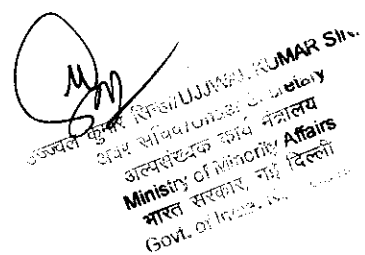 उज्ज्वल कुमार सिन्हा/UJJWAL KUMAR
अवर सचिव/Under Secretary
अल्पसंख्यक कार्य मंत्रालय
Ministry of Minority Affairs
भारत सरकार, नई दिल्ली
Govt. of India,